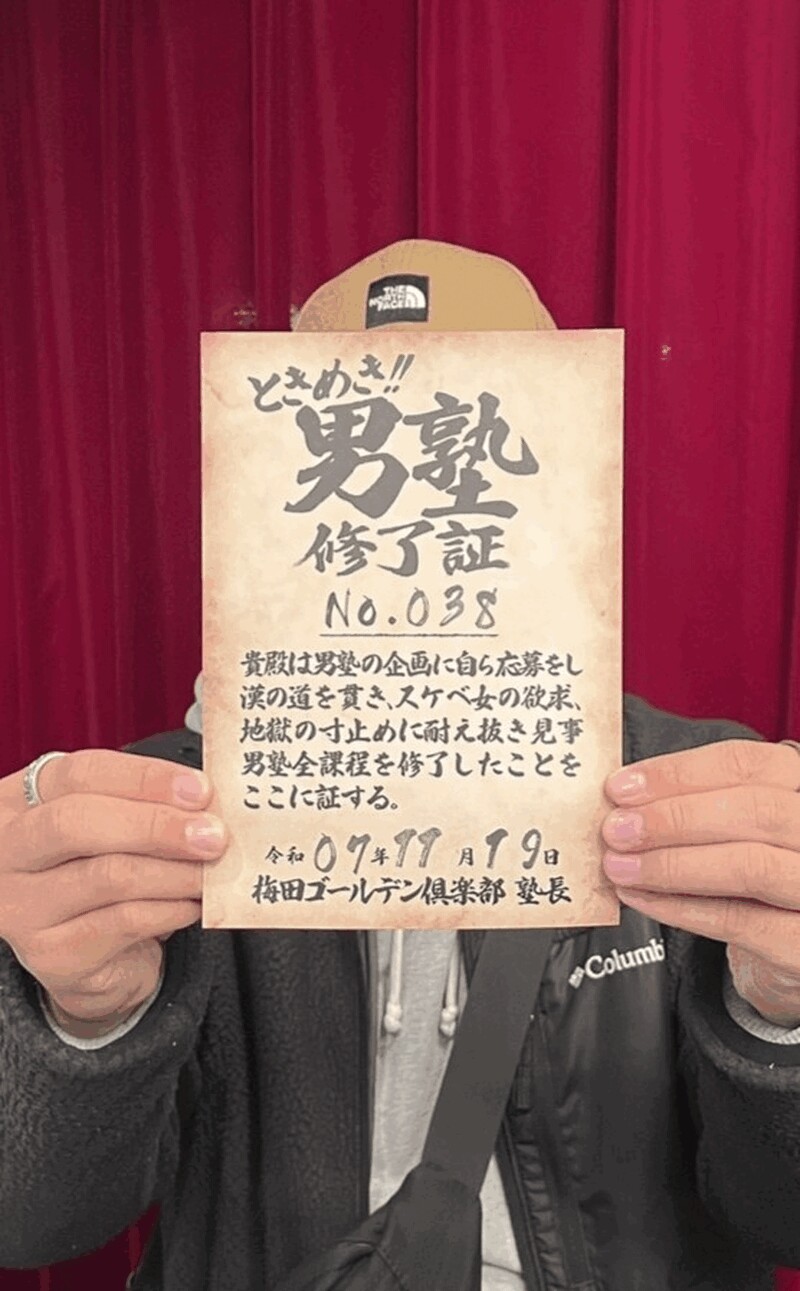 THE
NORTH
FACE
ときめき!!
男塾
修了証
No.038
貴殿は男塾の企画に自ら応募をし
漢の道を貫き、スケベ女の欲求、
地獄の寸止めに耐え抜き見事
男塾全課程を修了したことを
ここに証する。
令和07年11月19日
梅田ゴールデン倶楽部 塾長
Columb